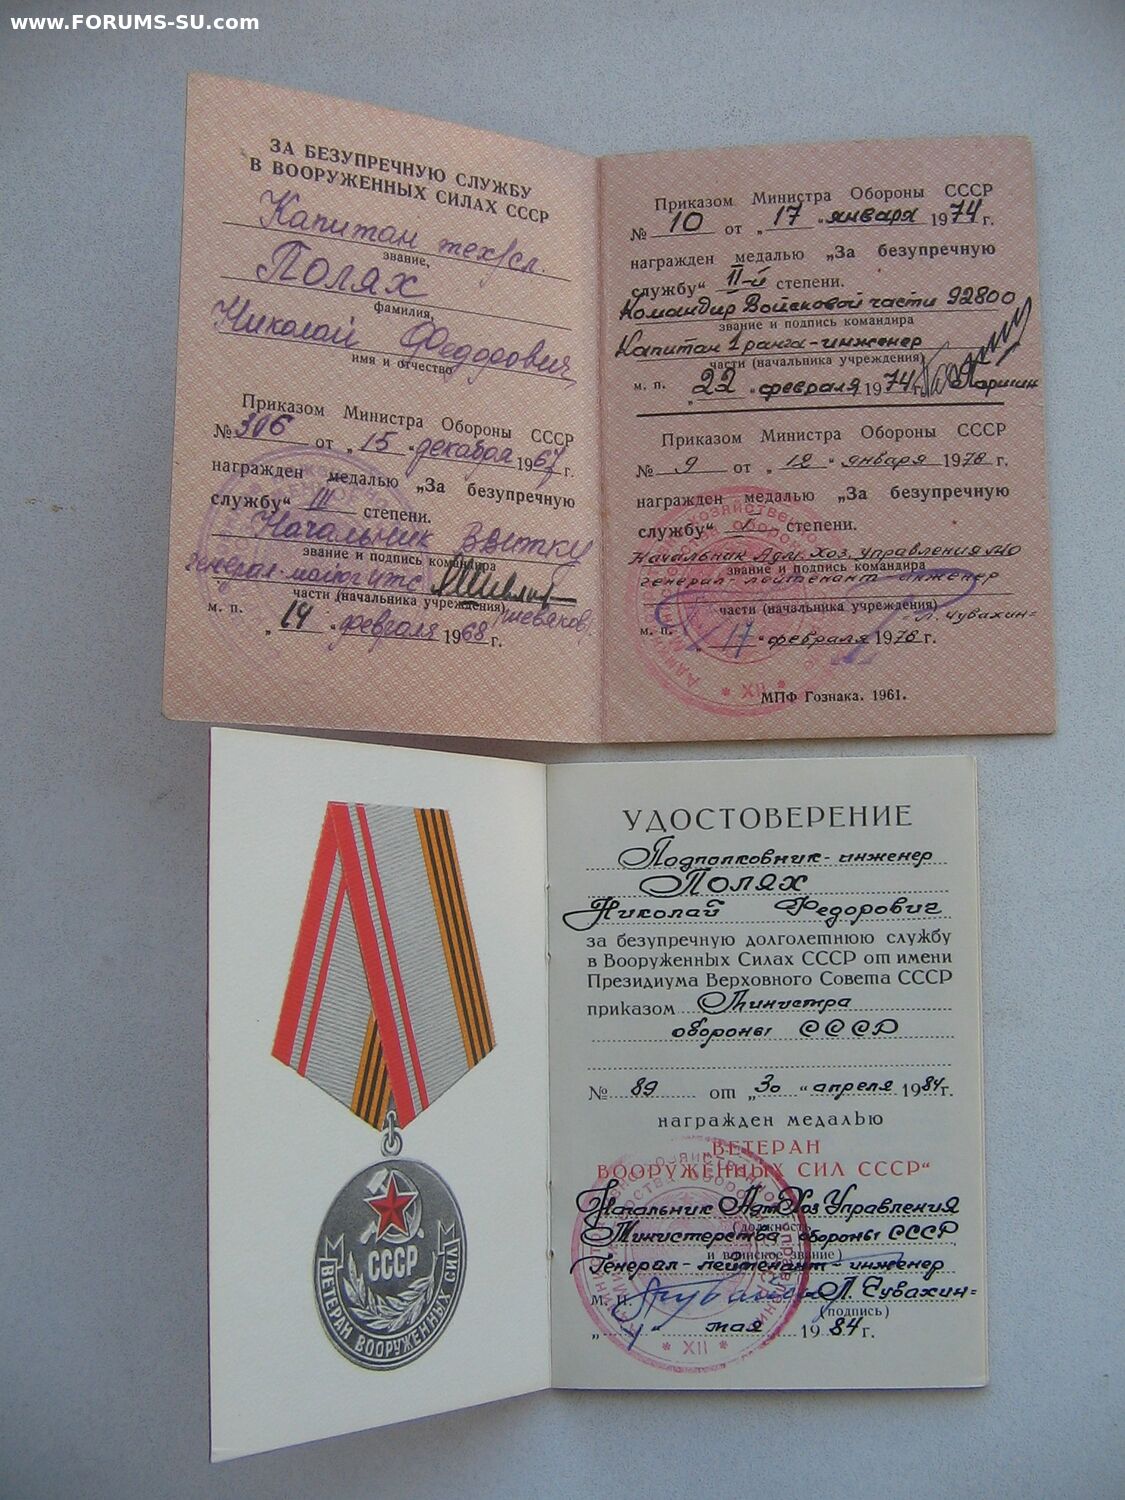 www.FORUMS-SU.com
ЗА БЕЗУПРЕЧНУЮ СЛУЖБУ
В ВООРУЖЕННЫХ СИЛАХ СССР
Капитан тех/сл.
звание,
Полях
фамилия,
Николай Федорович
имя и отчество
Приказом Министра Обороны СССР
№ 306 от „15" декабря 1967 г.
награжден медалью „За безупречную
службу" III степени.
Начальник
звание и подпись командира
генерал-майор итс
части (начальника учреждения)
м. п.
„14" февраля 1968 г.
Приказом Министра Обороны СССР
№ 10 от „17" января 1974 г.
награжден медалью „За безупречную
службу" II-й степени.
Командир Войсковой части 92800
звание и подпись командира
Капитан 1 ранга-инженер
части (начальника учреждения)
м. п. „22" февраля 1974 г. Паршин
Приказом Министра Обороны СССР
№ 9 от „12" января 1978 г.
награжден медалью „За безупречную
службу" I степени.
Начальник Адм. Хоз. Управления МО
звание и подпись командира
генерал-лейтенант-инженер
части (начальника учреждения)
Л. Чувахин
м. п. „17" февраля 1978 г.
XII
МПФ Гознака. 1961.
СССР
ВЕТЕРАН ВООРУЖЕННЫХ СИЛ
УДОСТОВЕРЕНИЕ
Подполковник-инженер
Полях
Николай Федорович
за безупречную долголетнюю службу
в Вооруженных Силах СССР от имени
Президиума Верховного Совета СССР
приказом Министра
обороны СССР
№ 89 от „30" апреля 1984 г.
награжден медалью
ВЕТЕРАН
ВООРУЖЕННЫХ СИЛ СССР"
Начальник Адм Хоз Управления
(должность
Министерства обороны СССР
и воинское звание)
Генерал-лейтенант-инженер
м. п. Л. Чувахин
(подпись)
мая 1984 г.
XII